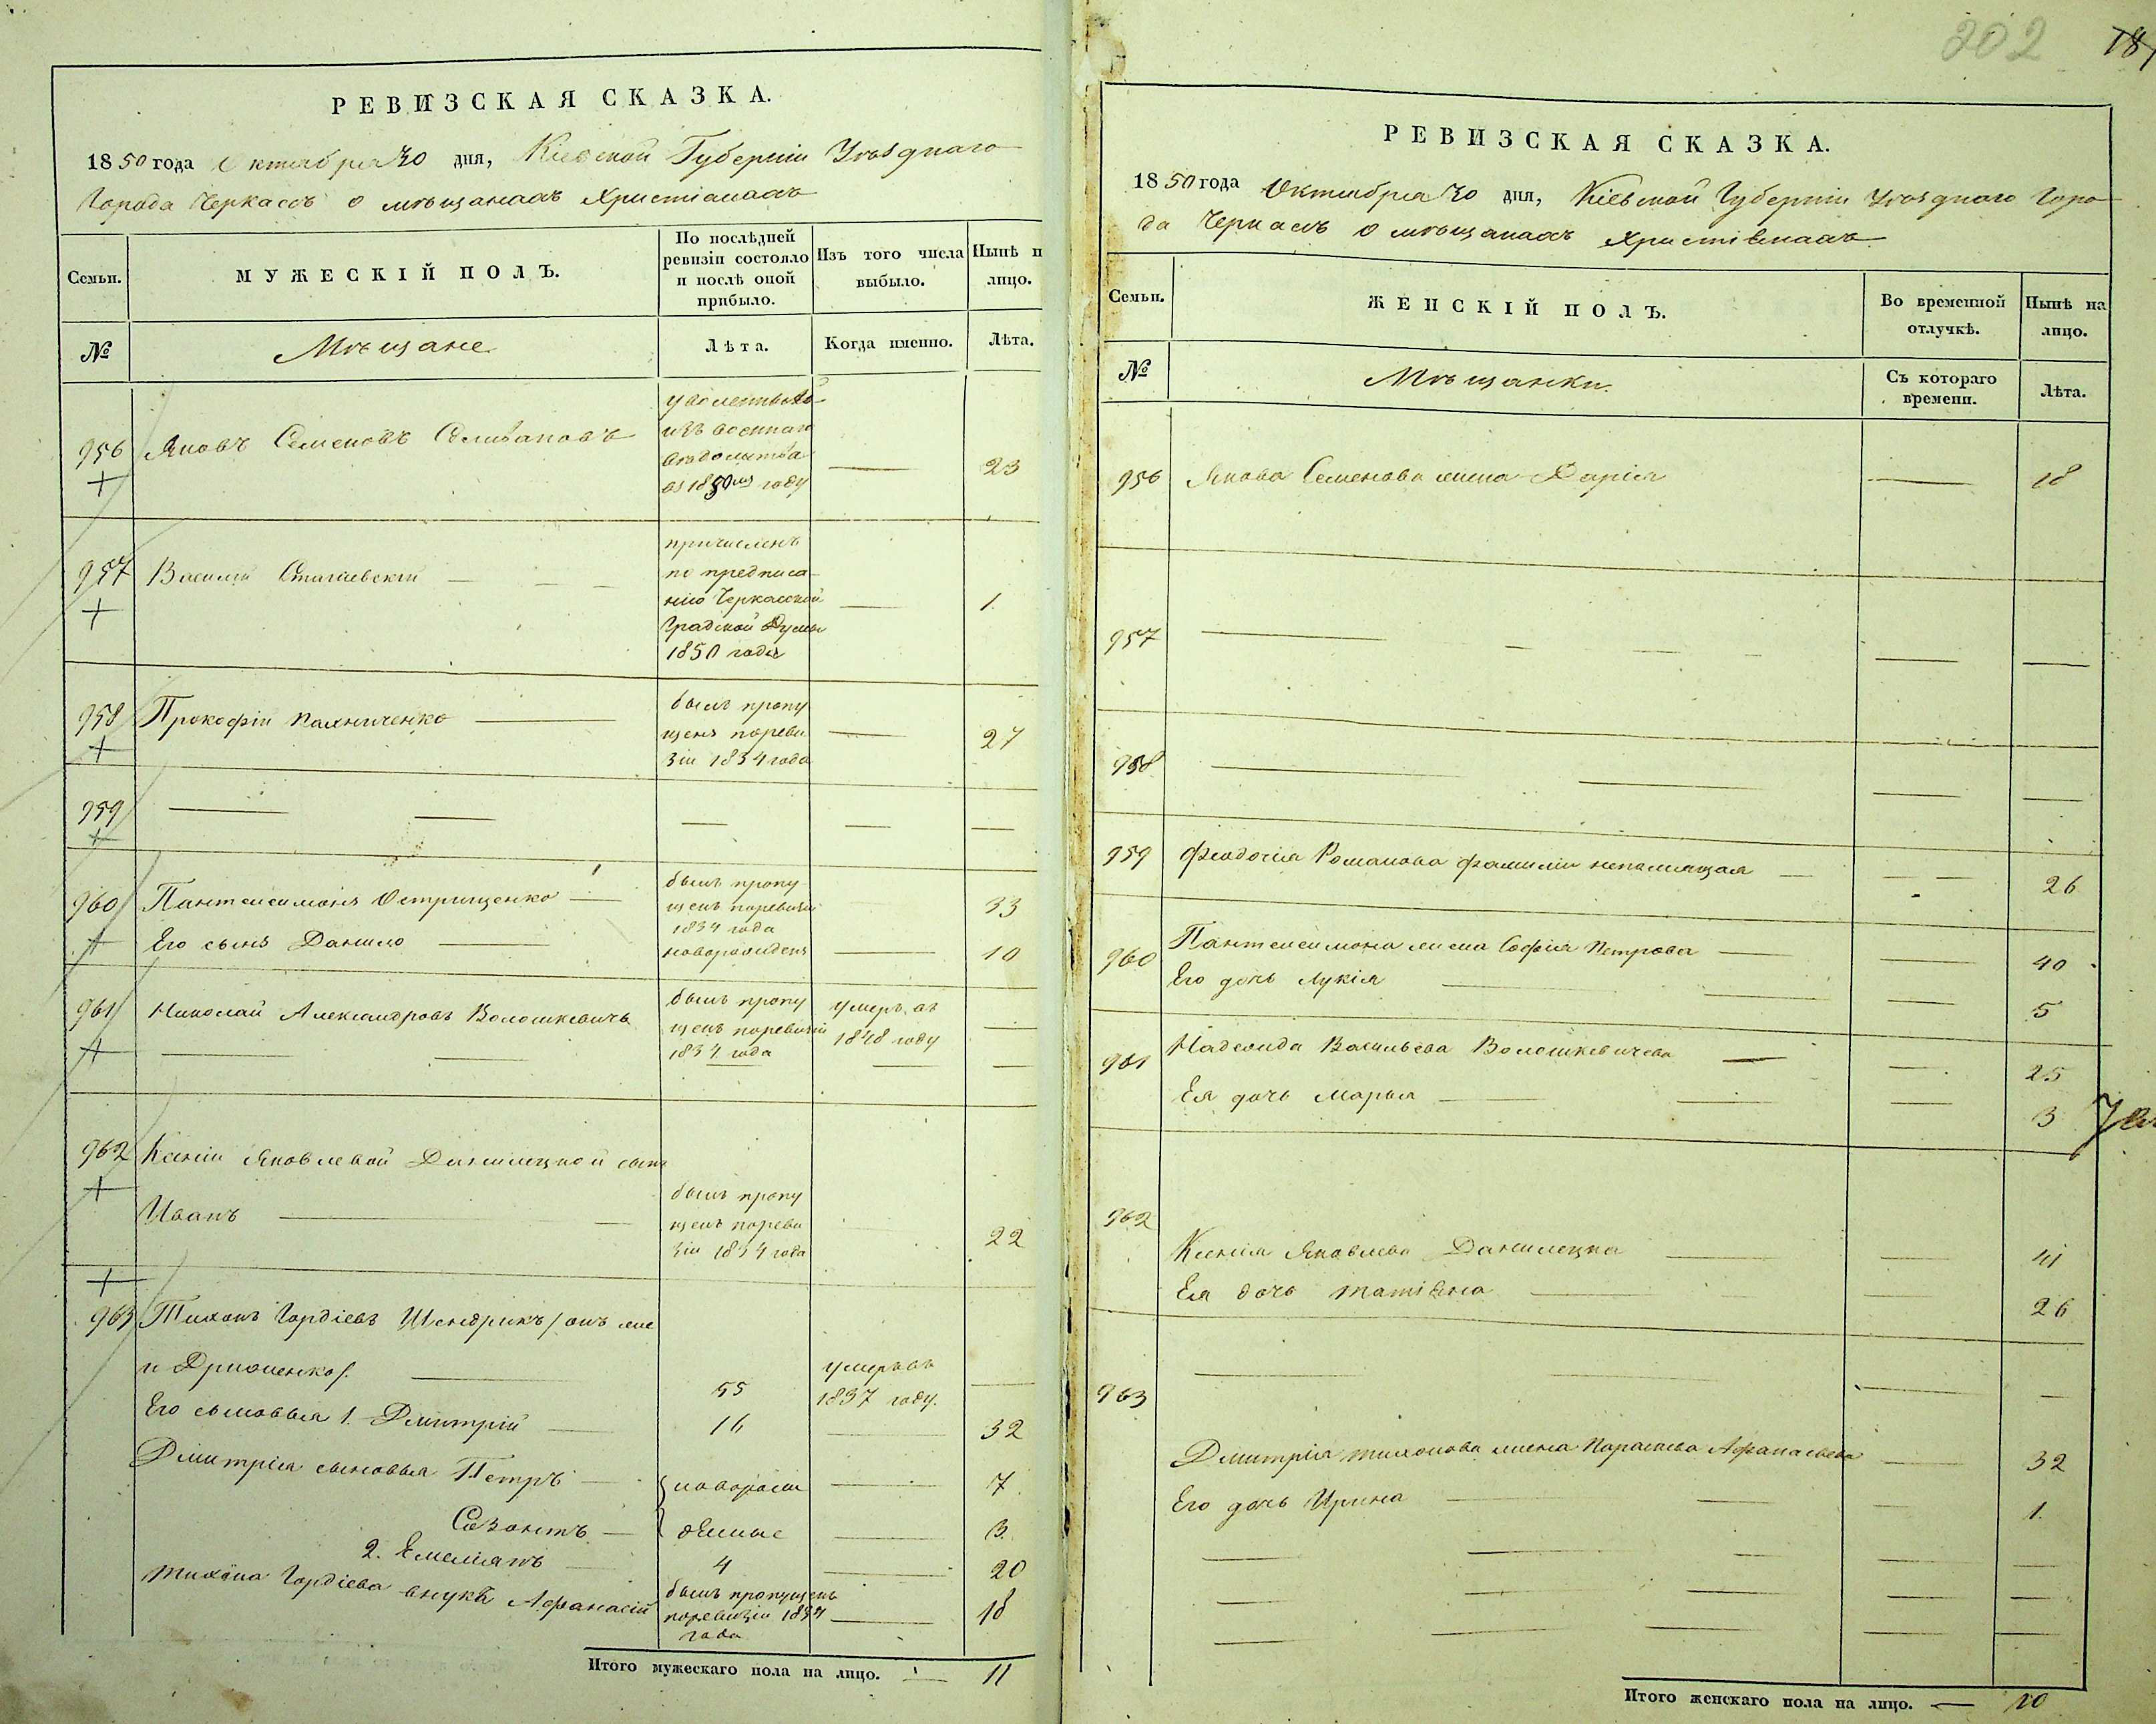 РЕВИЗСКАЯ СКАЗКА.
1850 года Октября 30 дня, Киевской Губернии Уѣзднаго
Города Черкасъ о мѣщанахъ Христіанахъ
Семьи.
МУЖЕСКІЙ ПОЛЪ.
По послѣдней
ревизіи состояло
и послѣ оной
прибыло.
Изъ того числа
выбыло.
Нынѣ н
лицо.
№
Мѣщане
Лѣта.
Когда именно.
Лѣта.
956 Яковъ Семеновъ Селивановъ
изъ военнаго
вѣдомства
въ 1850мъ году
23
957 Василій Стагіевскій
причисленъ
по предписа
нію Черкасской
Градской Думы
1850 года
1.
958 Прокофій Пахниченко
былъ пропу
щенъ пореви
зіи 1834 года
27
959
960 Пантелеимонъ Остринценко
былъ пропу
щенъ поревизіи
1834 года
33
Его сынъ Данило
новорожденъ
10
961 Николай Александровъ Волошкевичъ
былъ пропу
щенъ поревизіи
1834 года
умеръ въ
1848 году
962 Ксеніи Яковлевой Данилецкой сынъ
Иванъ
былъ пропу
щенъ пореви
зіи 1834 года
22
963 Тихонъ Гордіевъ Шендрикъ /онъ же
и Дрионенко/.
55
умеръ въ
1837 году.
Его сыновья 1. Дмитрій
16
32
Дмитрія сыновья Петръ
новорож
7.
Созонтъ
денные
3.
2. Емеліянъ
4
20
Тихона Гордіева внукъ Афанасій
былъ пропущенъ
поревизіи 1834
года
18
Итого мужескаго пола на лицо. 11
202
181
РЕВИЗСКАЯ СКАЗКА.
1850 года Октября 30 дня, Кіевской Губерніи Уѣзднаго Горо
да Черкасъ о мѣщанахъ Христіанахъ
Семьи.
ЖЕНСКІЙ ПОЛЪ.
Во временной
отлучкѣ.
Нынѣ на
лицо.
№
Мѣщанки.
Съ котораго
времени.
Лѣта.
956 Якова Семенова жена Дарія
18
957
958
959 Феодосія Романова фамиліи непомнящая
26
960 Пантелеимона жена Софія Петрова
40
Его дочь Лукія
5
961 Надежда Васильева Волошкевичева
25
Ея дочь Марья
3
962
Ксенія Яковлева Данилецка
41
Ея дочь Татіяна
26
963
Дмитрія Тихонова жена Параскева Афанасьева
32
Его дочь Ирина
1.
Итого женскаго пола на лицо. 10